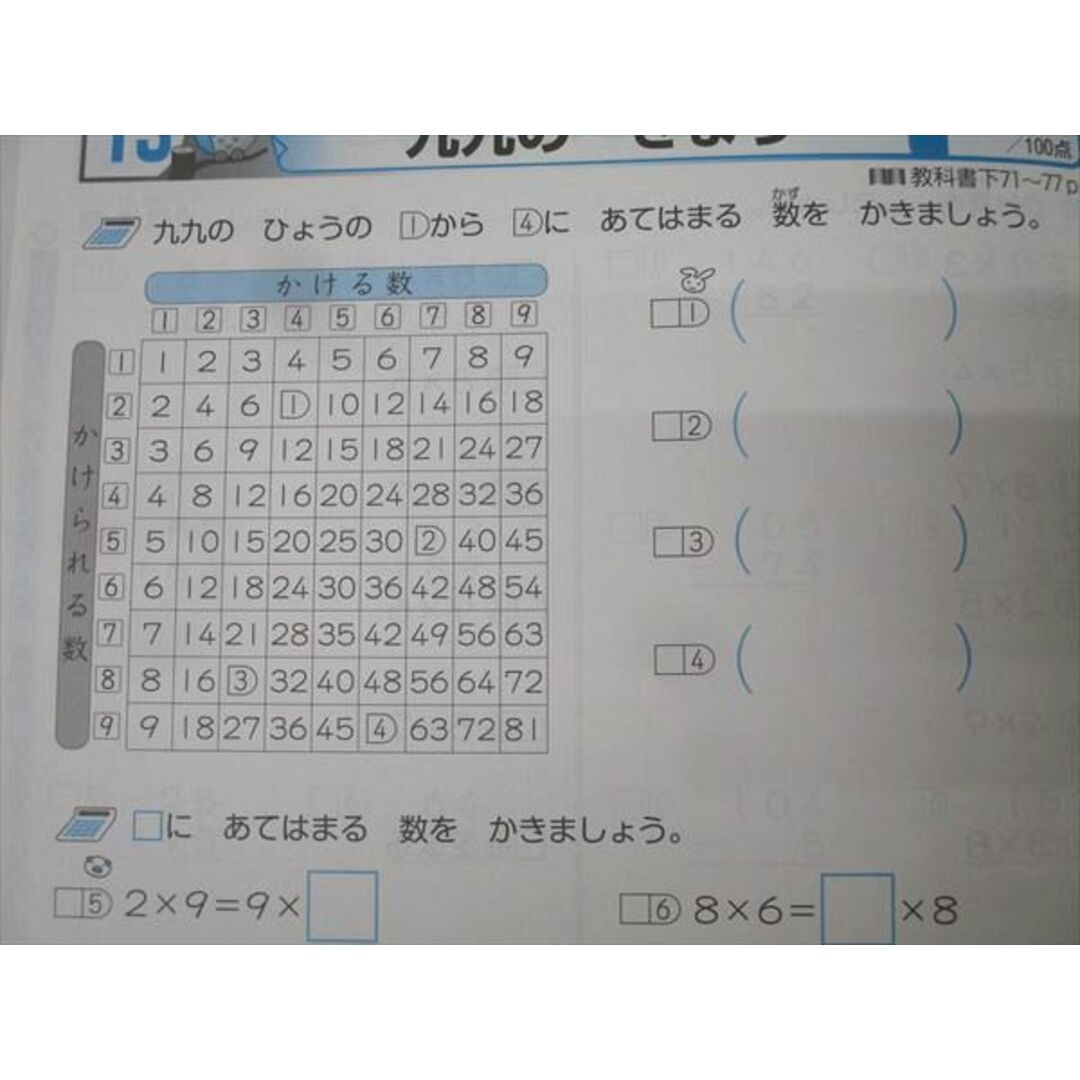 ／100点
教科書下71～77p
九九の ひょうの 1から 4に あてはまる 数を かきましょう。
かず
かける数
1 2 3 4 5 6 7 8 9
かけられる数
1 1 2 3 4 5 6 7 8 9
2 2 4 6 1 10 12 14 16 18
3 3 6 9 12 15 18 21 24 27
4 4 8 12 16 20 24 28 32 36
5 5 10 15 20 25 30 2 40 45
6 6 12 18 24 30 36 42 48 54
7 7 14 21 28 35 42 49 56 63
8 8 16 3 32 40 48 56 64 72
9 9 18 27 36 45 4 63 72 81
1 ( )
2 ( )
3 ( )
4 ( )
□に あてはまる 数を かきましょう。
5 2×9=9×□
6 8×6=□×8